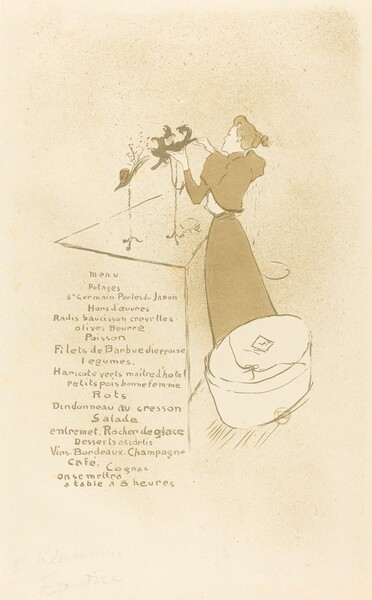 menu
Potages
St Germain Perles du Japon
Hors d'œuvres
Radis Saucisson crevettes
olives Beurre
Poisson
Filets de Barbue dieppoise
légumes.
Haricots verts maitre d'hotel
petits pois bonne femme
Rots
Dindonneau au cresson
Salade
entremet. Rocher de glace
Desserts assortis
Vins. Bordeaux. Champagne
Café.
Cognac
on se mettra
a table à 8 heures